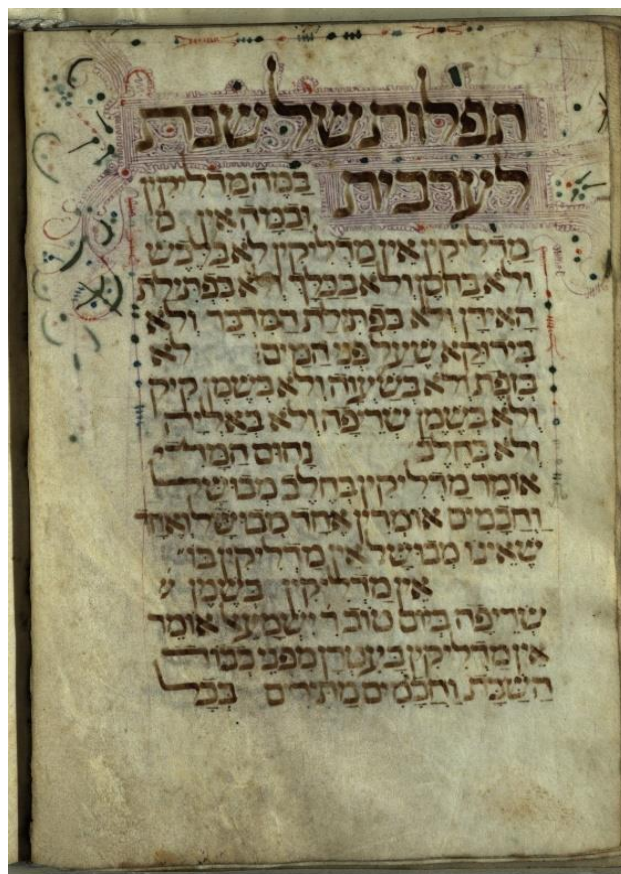 תפלות של שבת
לערבית
בַּמֶּה מַדְלִיקִין
וּבַמָּה אֵין מ
מַדְלִיקִין אֵין מַדְלִיקִין לֹא בְלֶכֶשׁ
וְלֹא בְחֹסֶן וְלֹא בְכַלָּךְ וְלֹא בִפְתִילַת
הָאִידָן וְלֹא בִפְתִילַת הַמִּדְבָּר וְלֹא
בִירוֹקָא שֶׁעַל פְּנֵי הַמַּיִם לֹא
בְזֶפֶת וְלֹא בְשַׁעֲוָה וְלֹא בְשֶׁמֶן קִיק
וְלֹא בְשֶׁמֶן שְׂרֵיפָה וְלֹא בְאַלְיָה
וְלֹא בְחֵלֶב נַחוּם הַמָּדִי
אוֹמֵר מַדְלִיקִין בְּחֵלֶב מְבוּשָּׁל
וַחֲכָמִים אוֹמְרִין אֶחָד מְבוּשָּׁל וְאֶחָד
שֶׁאֵינוֹ מְבוּשָּׁל אֵין מַדְלִיקִין בּוֹ
אֵין מַדְלִיקִין בְּשֶׁמֶן ש
שְׂרֵיפָה בְּיוֹם טוֹב ר יִשְׁמָעֵאל אוֹמֵר
אֵין מַדְלִיקִין בְּעִטְרָן מִפְּנֵי כְבוֹד
הַשַּׁבָּת וַחֲכָמִים מַתִּירִים בְּכָל